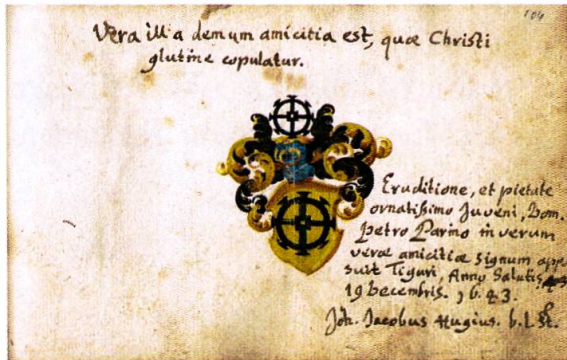 104
Vera illa demum amicitia est, quæ Christi
glutine copulatur.
Eruditione, et pietate
ornatissimo Juveni, Dom.
Petro Parino in verum
veræ amicitiæ signum app
suit Tiguri, Anno Salutis
19 Decembris. 1643.
Joh. Jacobus Hugius.